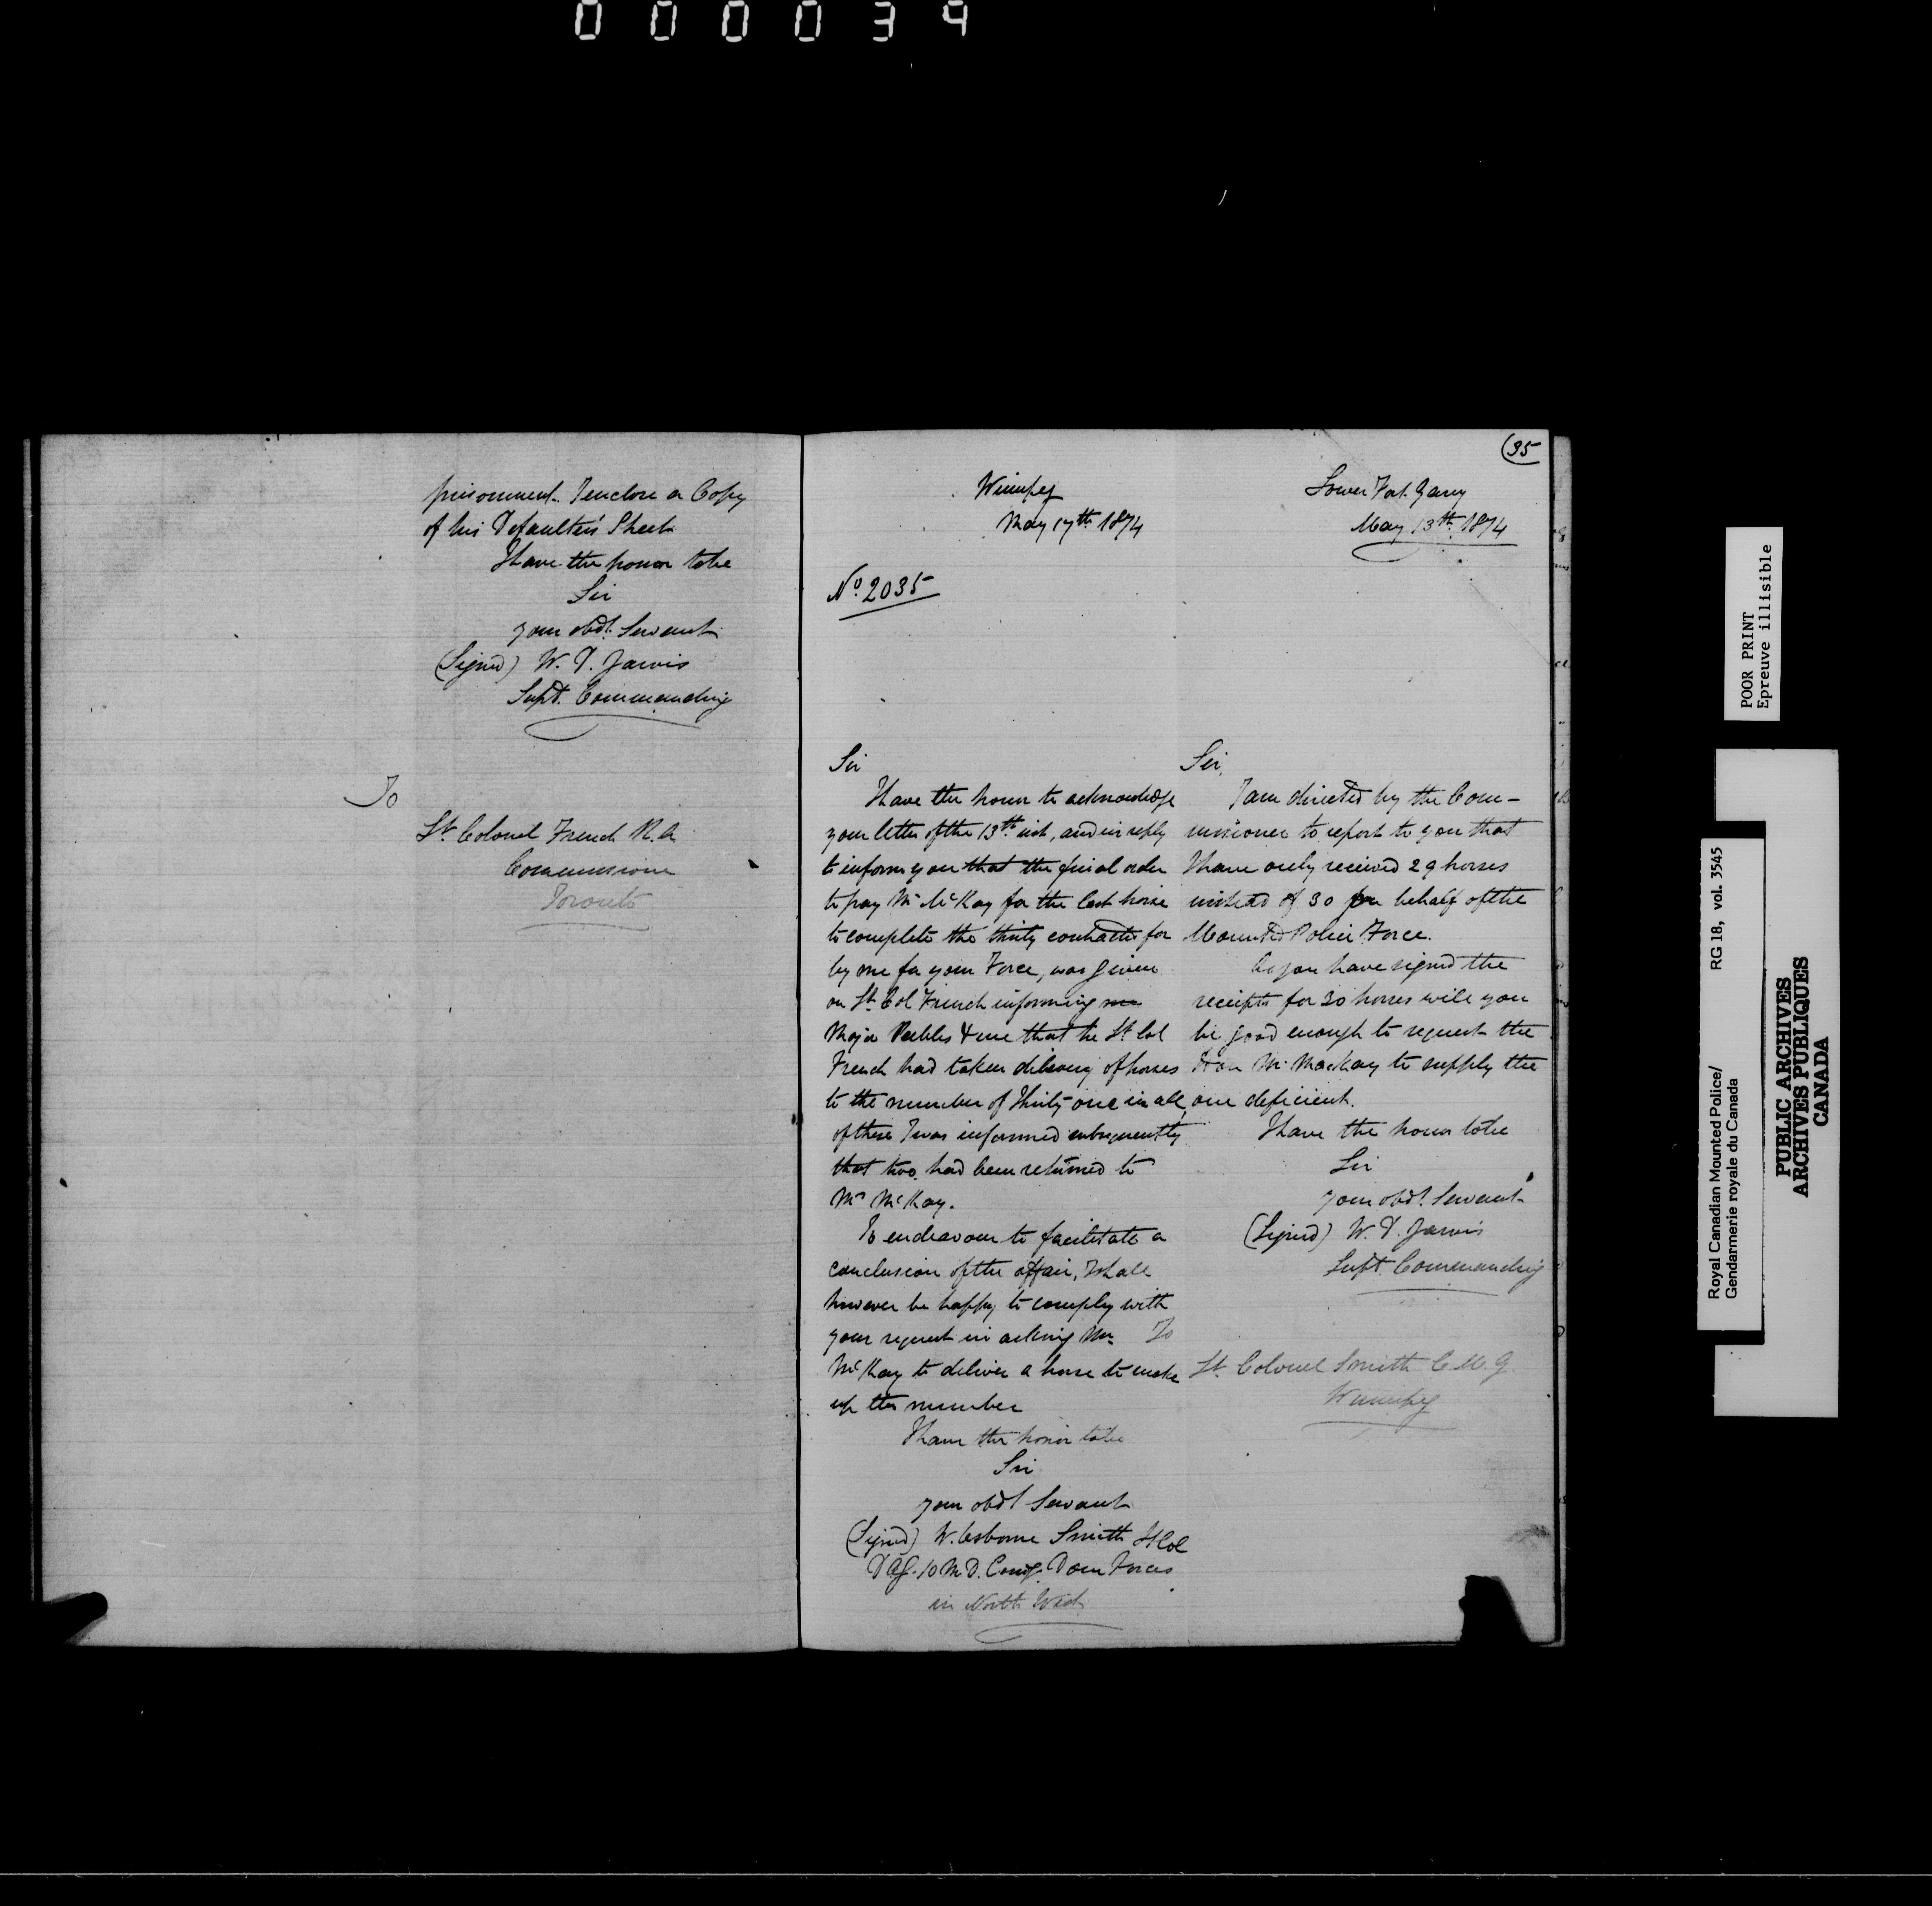 000034
prisonment. I enclose a Copy
of his Defaulter's Sheet.
I have the honor to be
Sir
your obdt. Servant
(Signed) W. D. Jarvis
Supt. Commanding
To
Lt. Colonel French R.A.
Commissioner
Toronto
35
Winnipeg
May 17th 1874
No. 2035
Sir
I have the honor to acknowledge
your letter of the 13th inst, and in reply
to inform you that the final order
to pay Mr McKay for the last horse
to complete the thirty contracted for
by me for your Force, was given
on Lt. Col French informing me
Major Peebles & me that he Lt Col
French had taken delivery of horses
to the number of Thirty-one in all,
of these I was informed subsequently
that two had been returned to
Mr McKay.
To endeavour to facilitate a
conclusion of the affair, I shall
however be happy to comply with
your request in asking Mr.
McKay to deliver a horse to make
up the number
I have the honor to be
Sir
your obdt Servant
(Signed) W. Osborne Smith Lt Col
DAG. 10 M.D. Comg. Dom Forces
in North West
Lower Fort Garry
May 13th. 1874
Sir,
I am directed by the Com-
missioner to report to you that
I have only received 29 horses
instead of 30 on behalf of the
Mounted Police Force.
As you have signed the
receipts for 30 horses will you
be good enough to request the
Hon Mr. MacKay to supply the
one deficient.
I have the honor to be
Sir
your obdt. Servant
(Signed) W. D. Jarvis
Supt. Commanding
To
Lt. Colonel Smith C.M.G.
Winnipeg
POOR PRINT
Epreuve illisible
Royal Canadian Mounted Police/ RG 18, vol. 3545
Gendarmerie royale du Canada
PUBLIC ARCHIVES
ARCHIVES PUBLIQUES
CANADA